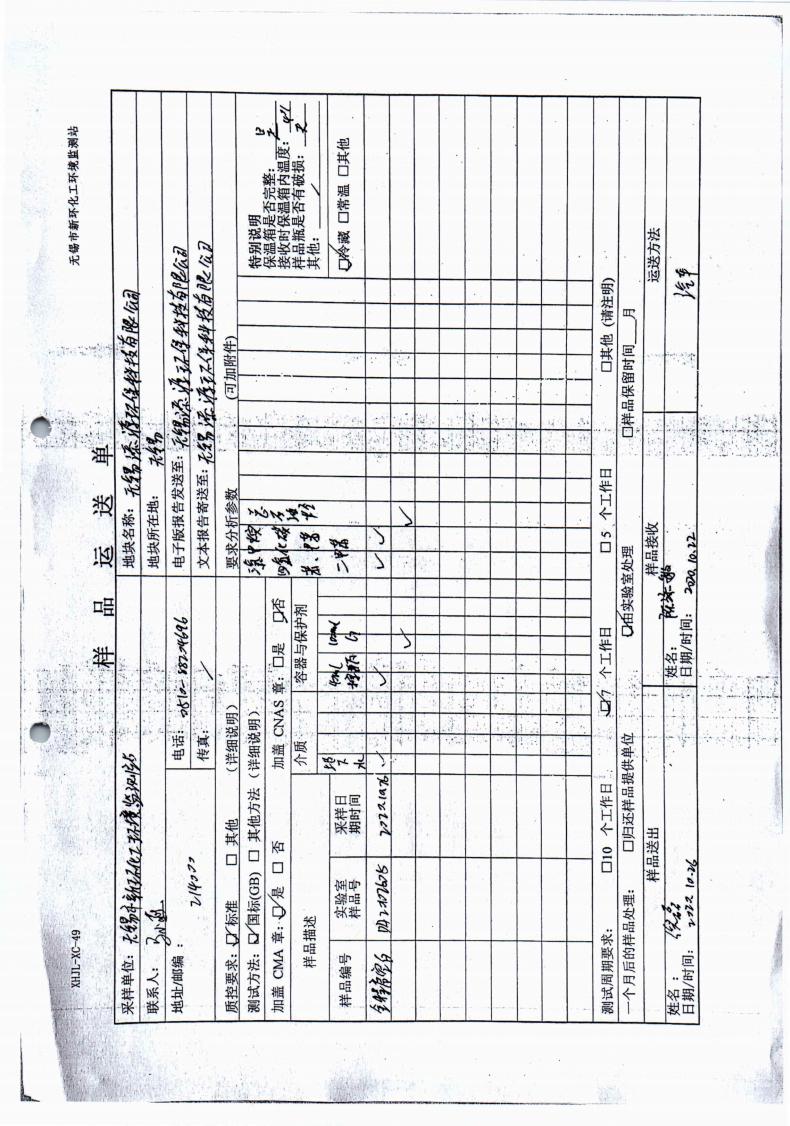 XHJL-XC-49
无锡市新环化工环境监测站
样 品 运 送 单
采样单位：无锡市新环化工环境监测站
地块名称：无锡添源环保科技有限公司
联系人：
地块所在地：无锡
地址/邮编：214000
电话：
电子版报告发送至：无锡添源环保科技有限公司
传真：/
文本报告寄送至：无锡添源环保科技有限公司
质控要求：☑标准 □ 其他 （详细说明）
要求分析参数 (可加附件)
测试方法：☑国标(GB) □ 其他方法（详细说明）
加盖 CMA 章：☑是 □ 否 加盖 CNAS 章：□是 ☑否
特别说明
保温箱是否完整：是
接收时保温箱内温度：4℃
样品瓶是否有破损：无
其他：/
样品描述
介质
容器与保护剂
四氯化碳
苯、甲苯
二甲苯
地下水
40ml
☑冷藏 □常温 □其他
样品编号
实验室样品号
采样日期时间
全程序空白
2022.10.26
✓ ✓ ✓ ✓
✓ ✓
测试周期要求： □10 个工作日 ☑7 个工作日 □5 个工作日 □其他 (请注明)
一个月后的样品处理： □归还样品提供单位 ☑由实验室处理 □样品保留时间__月
样品送出
样品接收
运送方法
姓名：
日期/时间：2022.10.26
姓名：
日期/时间：
汽车